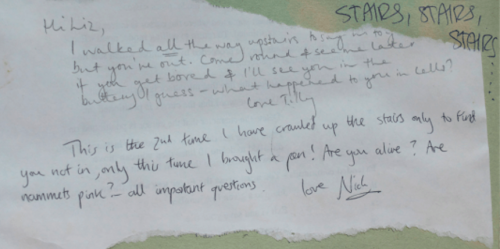 STAIRS, STAIRS,
STAIRS
Hi Liz,
I walked all the way upstairs to
but you're out. Come round & see me later
if you get bored & I'll see you in the
buttery I guess – what happened to you in cello?
Love Tilly
This is the 2nd time I have crawled up the stairs only to find
you not in, only this time I brought a pen! Are you alive? Are
mammets pink? – all important questions.
love Nick